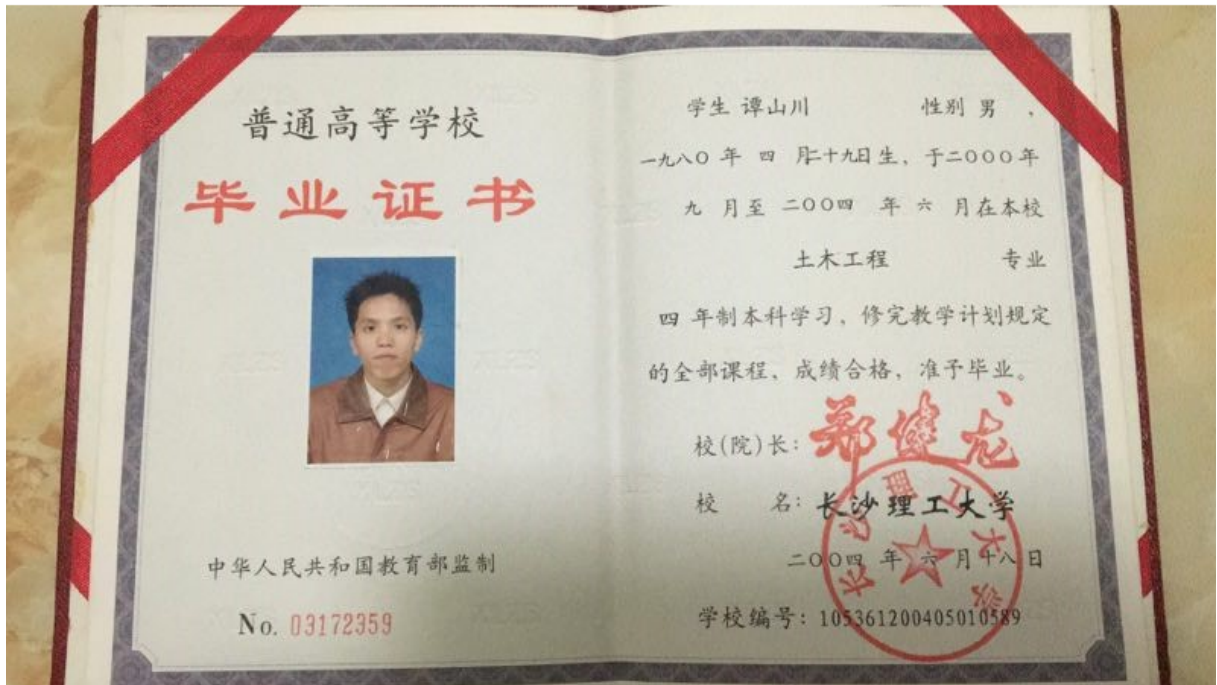 普通高等学校
毕业证书
中华人民共和国教育部监制
No. 03172359
学生 谭山川 性别 男 ,
一九八〇 年 四 月二十九日生, 于二〇〇〇年
九 月至 二〇〇四 年 六 月在本校
土木工程 专业
四 年制本科学习, 修完教学计划规定
的全部课程, 成绩合格, 准予毕业。
校(院)长: 郑健龙
校 名: 长沙理工大学
二〇〇四 年 六 月 十八 日
学校编号: 105361200405010589
长沙理工大学